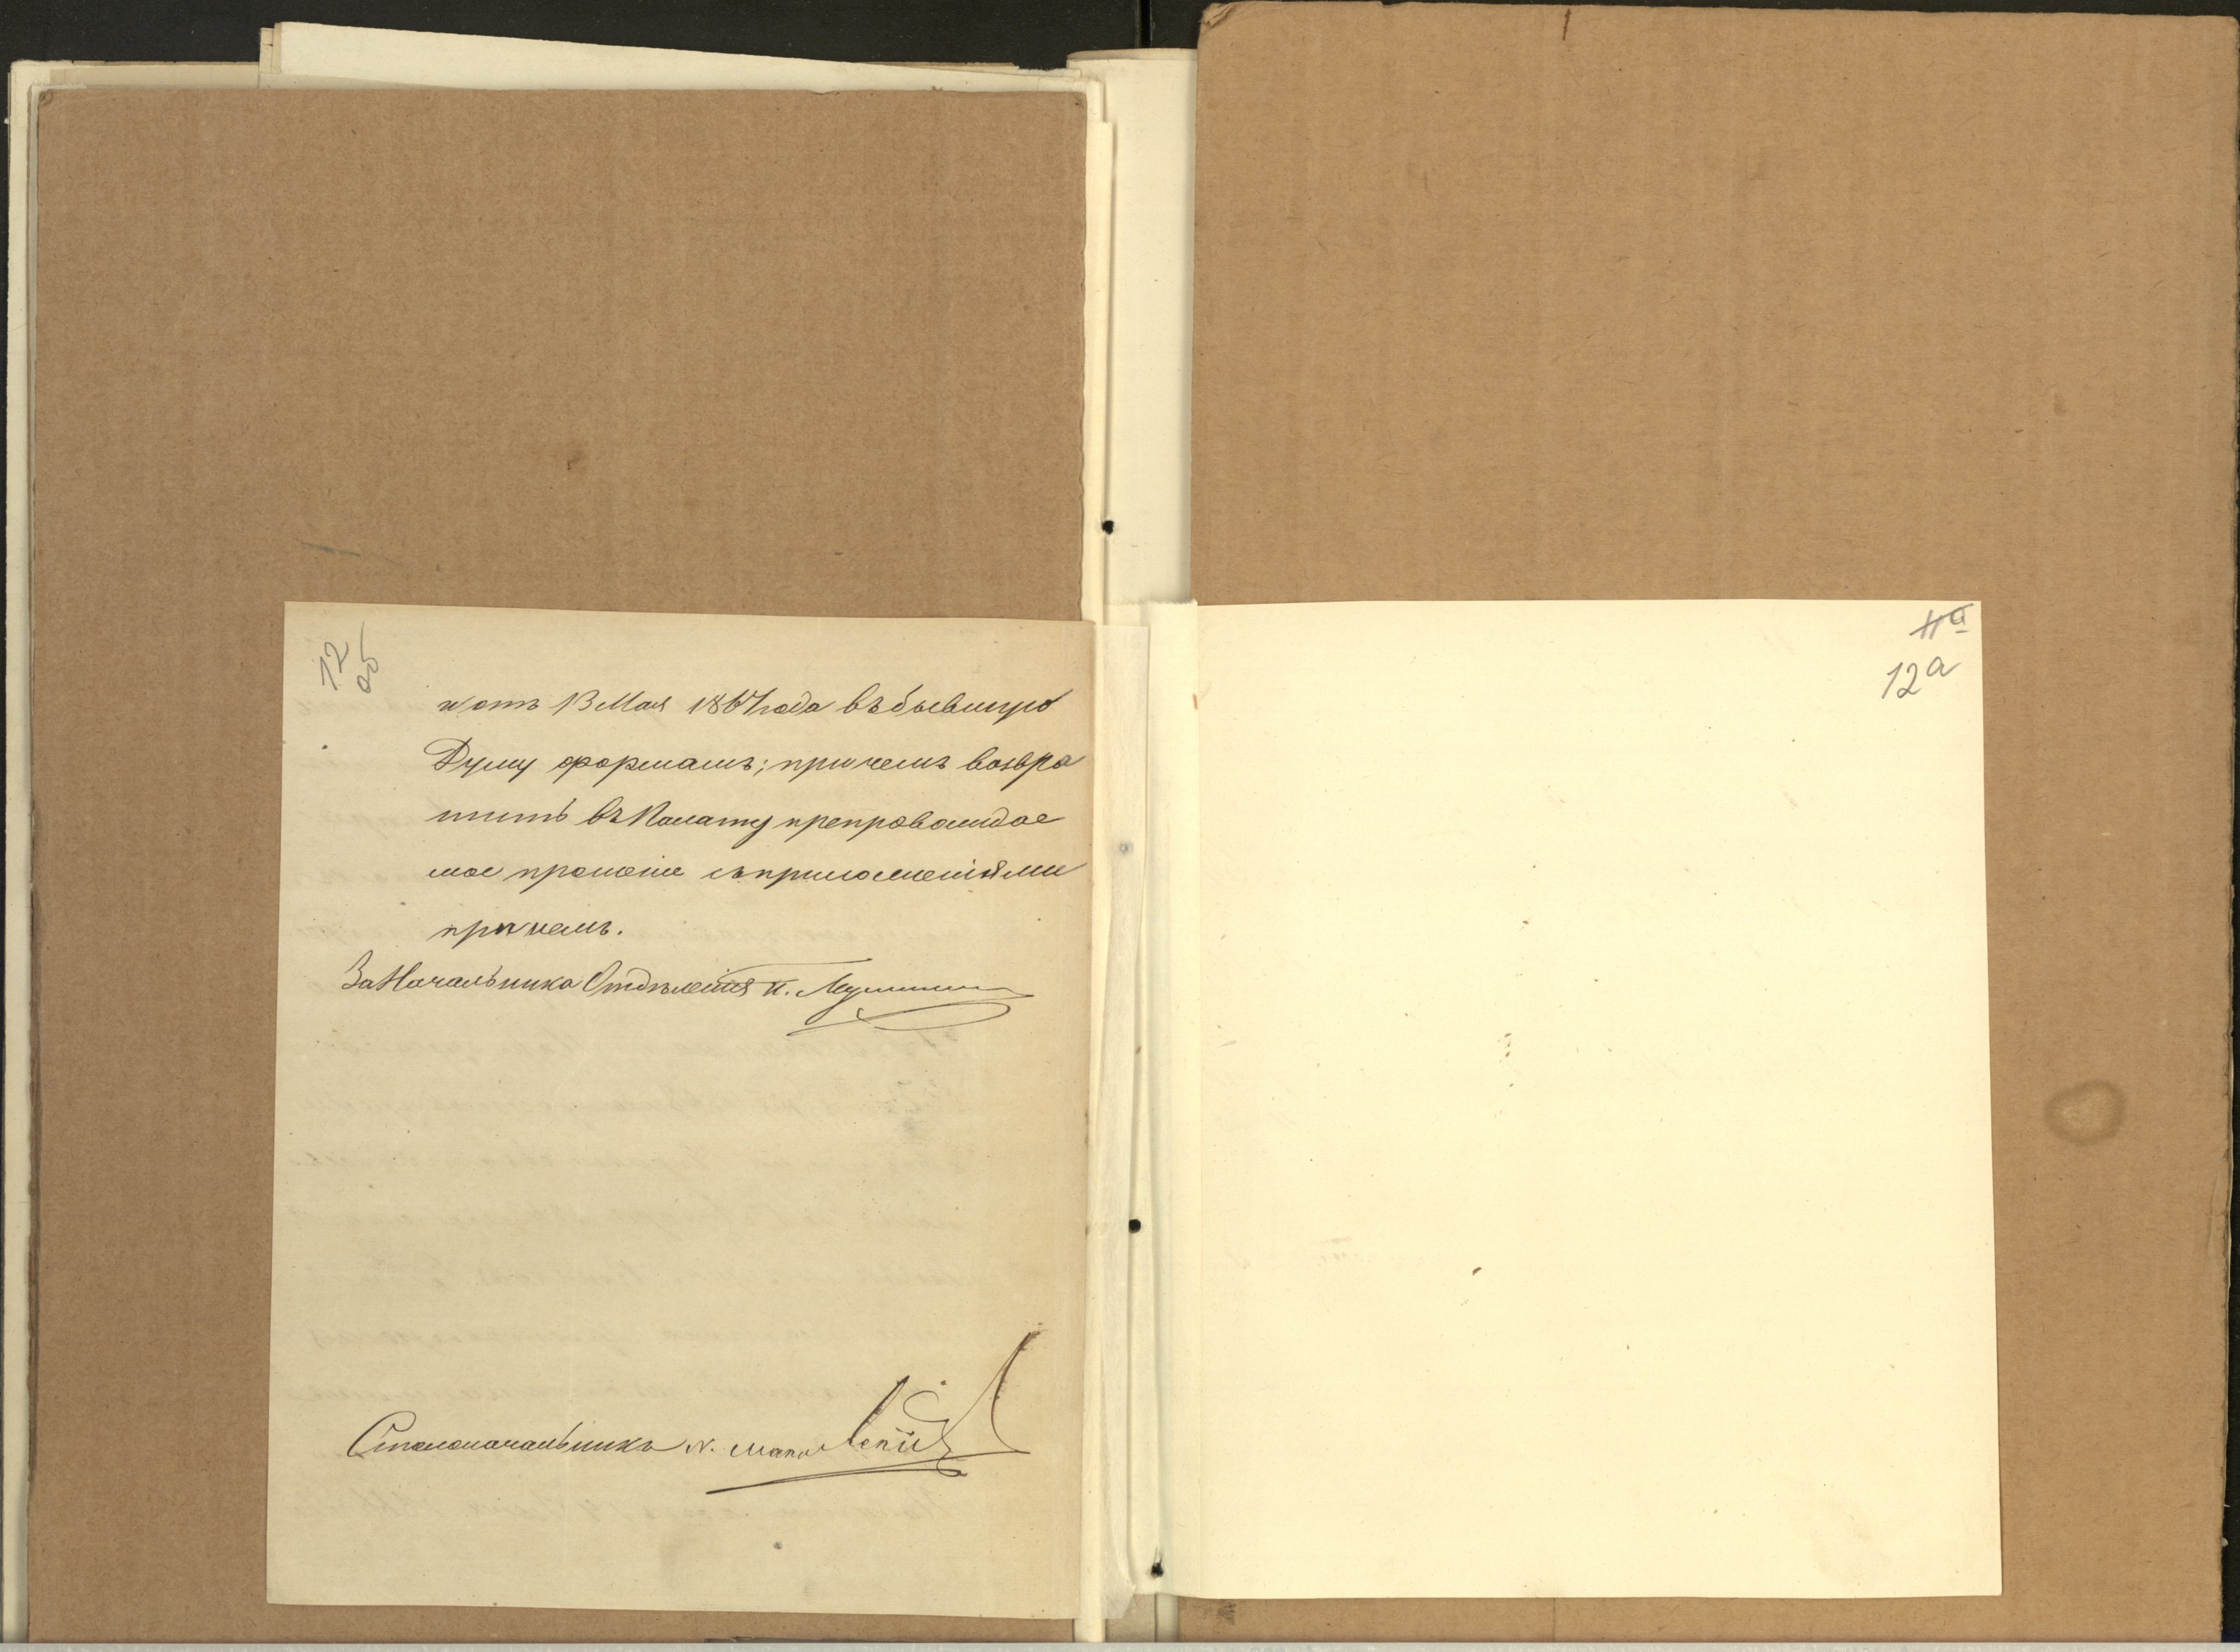 12
об
и отъ 13 Мая 1867 года въ бывшую
Думу формамъ; причемъ возвра
тить въ Палату препровождае
мое прошение съ приложениями
причемъ.
За Начальника Отдѣления
Столоначальникъ
11а
12а